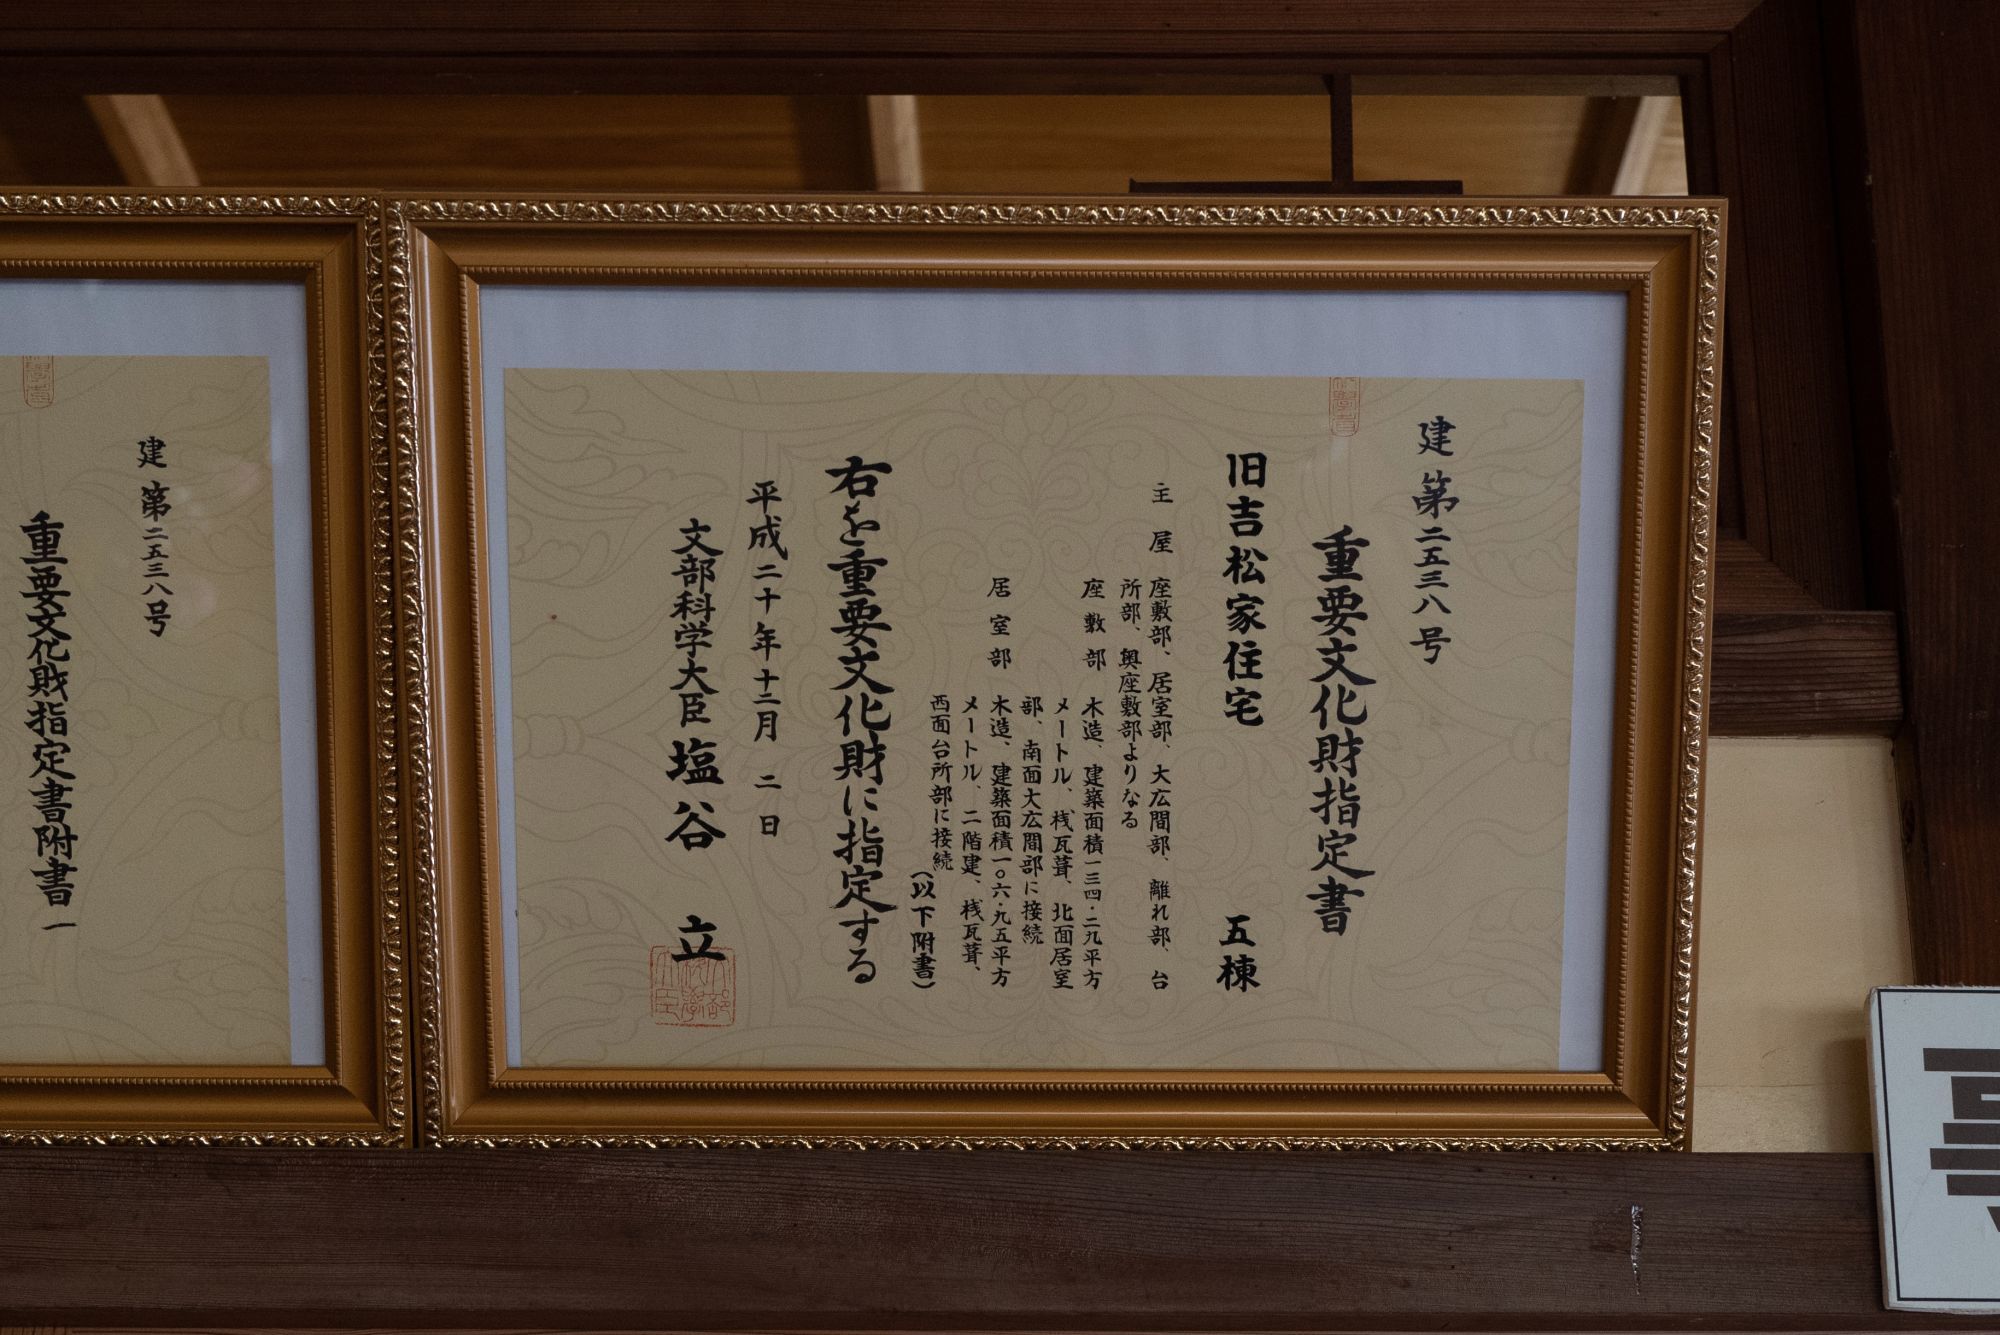 建第二五三八号
重要文化財指定書
旧吉松家住宅 五棟
主屋 座敷部、居室部、大広間部、離れ部、台
所部、奥座敷部よりなる
座敷部 木造、建築面積一三四・二九平方
メートル、桟瓦葺、北面居室
部、南面大広間部に接続
居室部 木造、建築面積一〇六・九五平方
メートル、二階建、桟瓦葺、
西面台所部に接続
(以下附書)
右を重要文化財に指定する
平成二十年十二月二日
文部科学大臣 塩谷 立
建第二五三八号
重要文化財指定書附書一